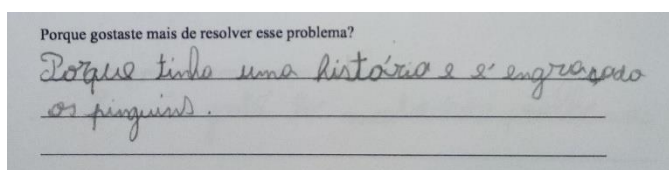 Porque gostaste mais de resolver esse problema?
Porque tinha uma história e é engraçado
os pinguins.